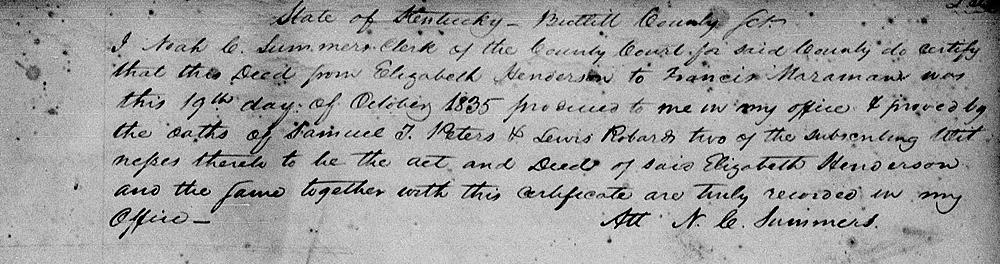 State of Kentucky – Bullitt County Sct
I Noah C. Summers Clerk of the County Court for said County do certify
that this Deed from Elizabeth Henderson to Francis Maraman was
this 19th day of October 1835 produced to me in my office & proved by
the oaths of Samuel T. Peters & Lewis Robards two of the subscribing Wit
nesses thereto to be the act and Deed of said Elizabeth Henderson
and the same together with this certificate are truly recorded in my
Office –
Att N. C. Summers.